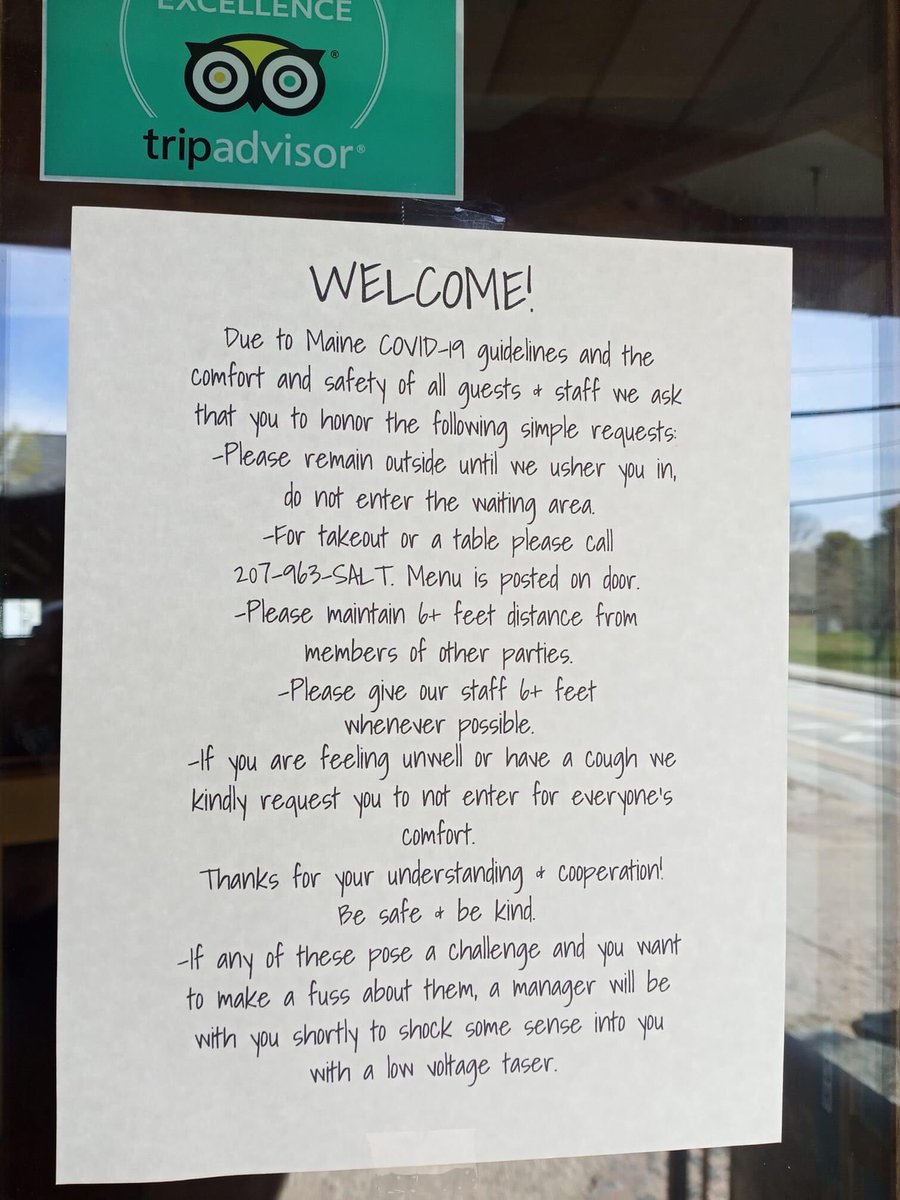 EXCELLENCE
tripadvisor®
WELCOME!
Due to Maine COVID-19 guidelines and the
comfort and safety of all guests & staff we ask
that you to honor the following simple requests:
-Please remain outside until we usher you in,
do not enter the waiting area.
-For takeout or a table please call
207-963-SALT. Menu is posted on door.
-Please maintain 6+ feet distance from
members of other parties.
-Please give our staff 6+ feet
whenever possible.
-If you are feeling unwell or have a cough we
kindly request you to not enter for everyone's
comfort.
Thanks for your understanding & cooperation!
Be safe & be kind.
-If any of these pose a challenge and you want
to make a fuss about them, a manager will be
with you shortly to shock some sense into you
with a low voltage taser.